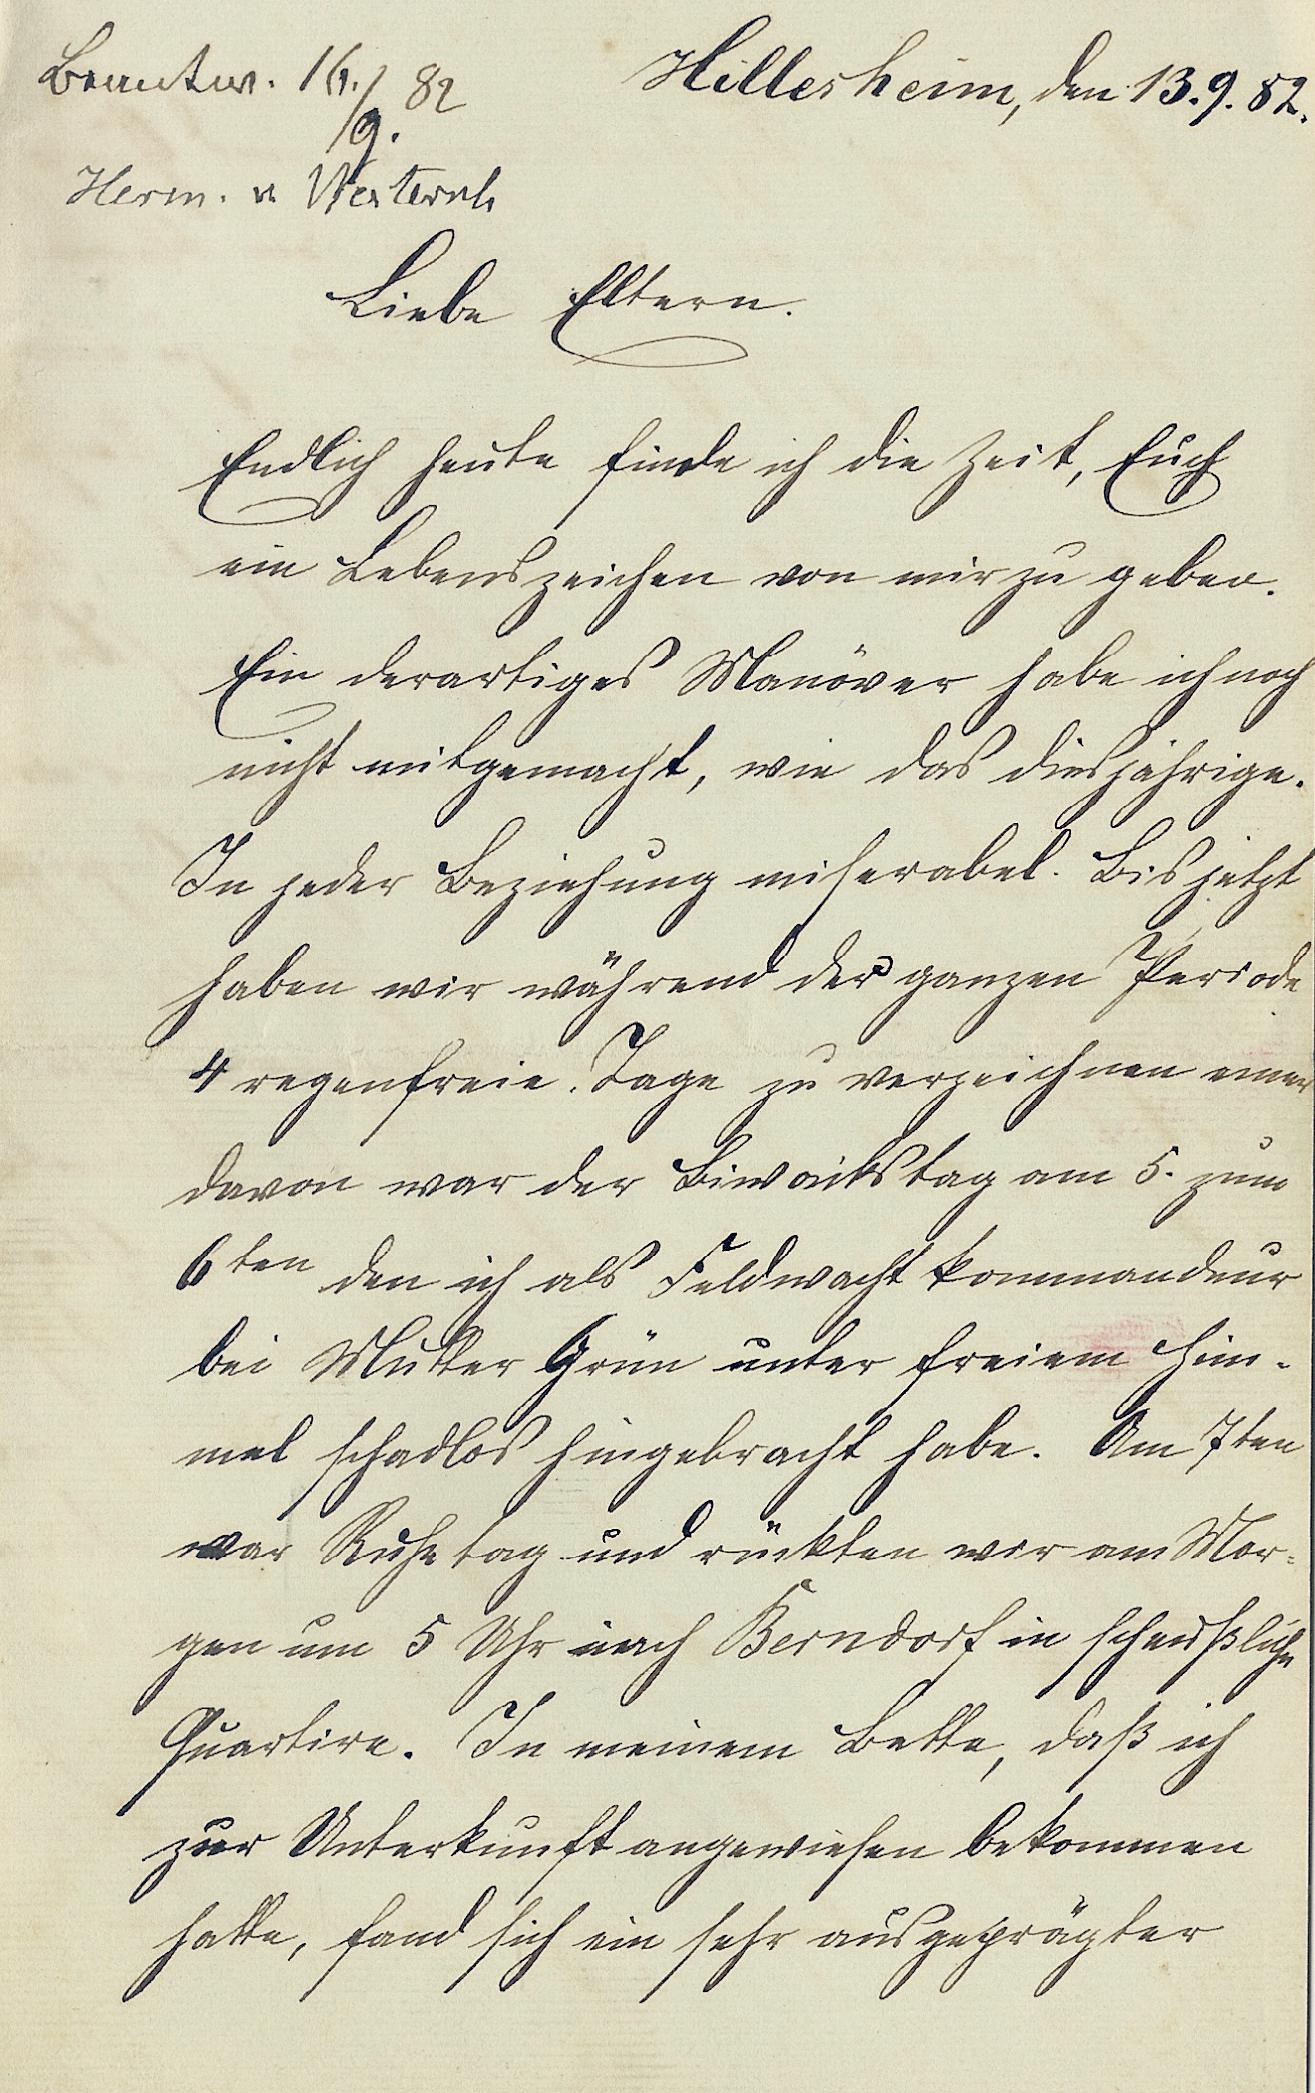 Beantw. 16./9. 82
Hillesheim, den 13.9.82.
Herm. u
Liebe Eltern.
Endlich heute finde ich die Zeit, Euch
ein Lebenszeichen von mir zu geben.
Ein derartiges Manöver habe ich noch
nicht mitgemacht, wie das diesjährige.
In jeder Beziehung miserabel. Bis jetzt
haben wir während der ganzen Periode
4 regenfreie Tage zu verzeichnen einer
davon war der Biwakstag am 5. zum
6ten den ich als Feldwachtkommandeur
bei Mutter Grün unter freiem Him-
mel schadlos hingebracht habe. Am 7ten
war Ruhetag und rückten wir am Mor-
gen um 5 Uhr nach Berndorf in scheußliche
Quartire. In meinem Bette, daß ich
zur Unterkunft angewiesen bekommen
hatte, fand sich ein sehr ausgeprägter